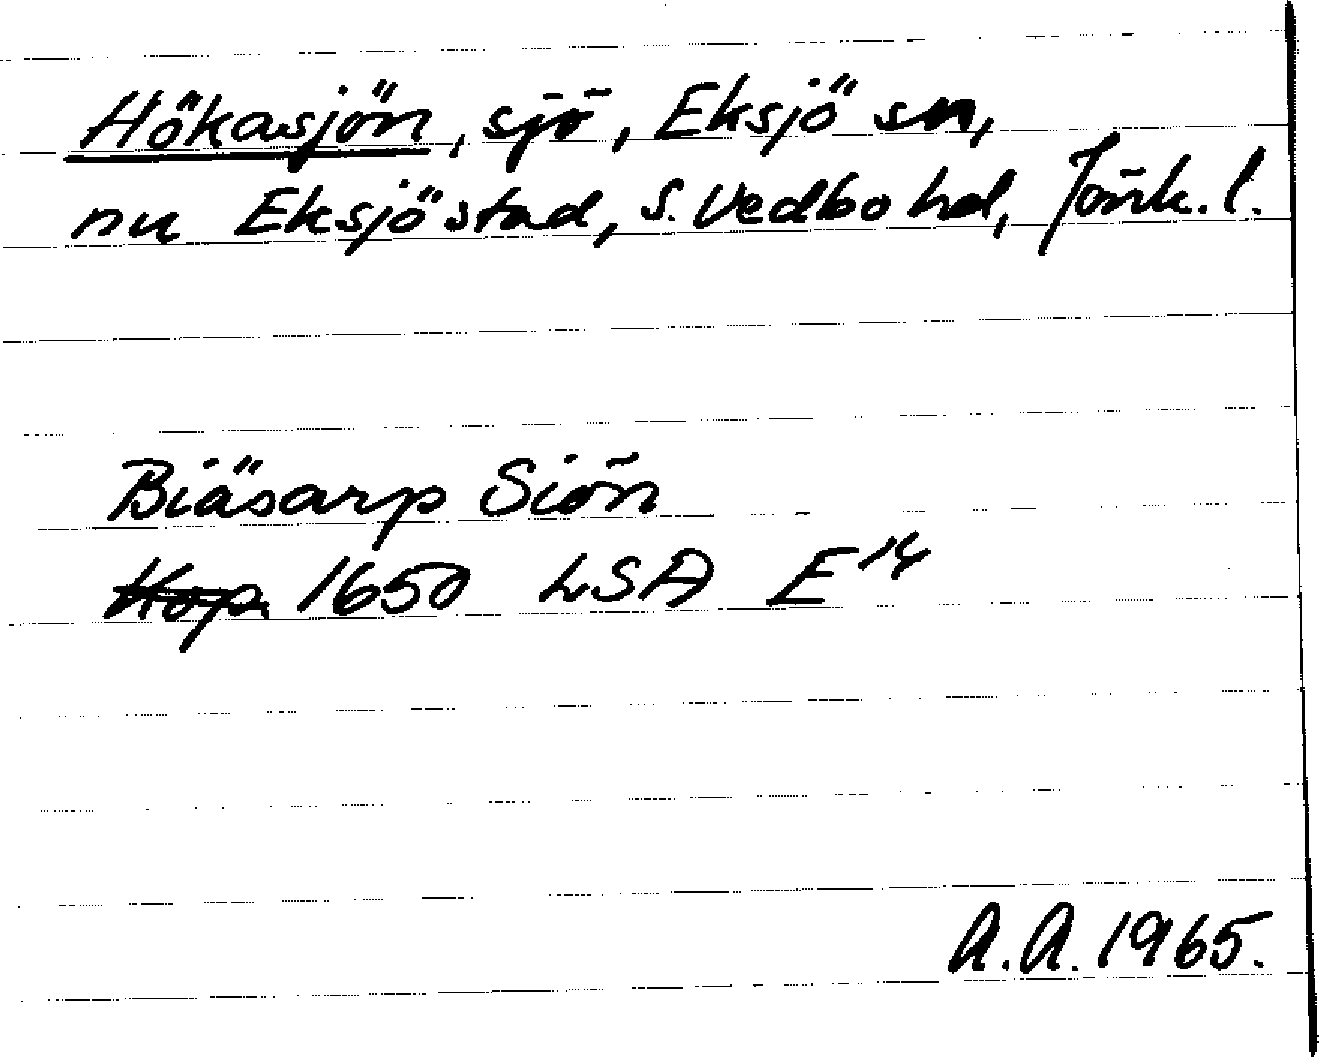 Hökasjön, sjö, Eksjö sn,
nu Eksjö stad, S. Vedbo hd, Jönk. l.
Biäsarp Siön
Kop. 1650 LSA E14
A.A. 1965.